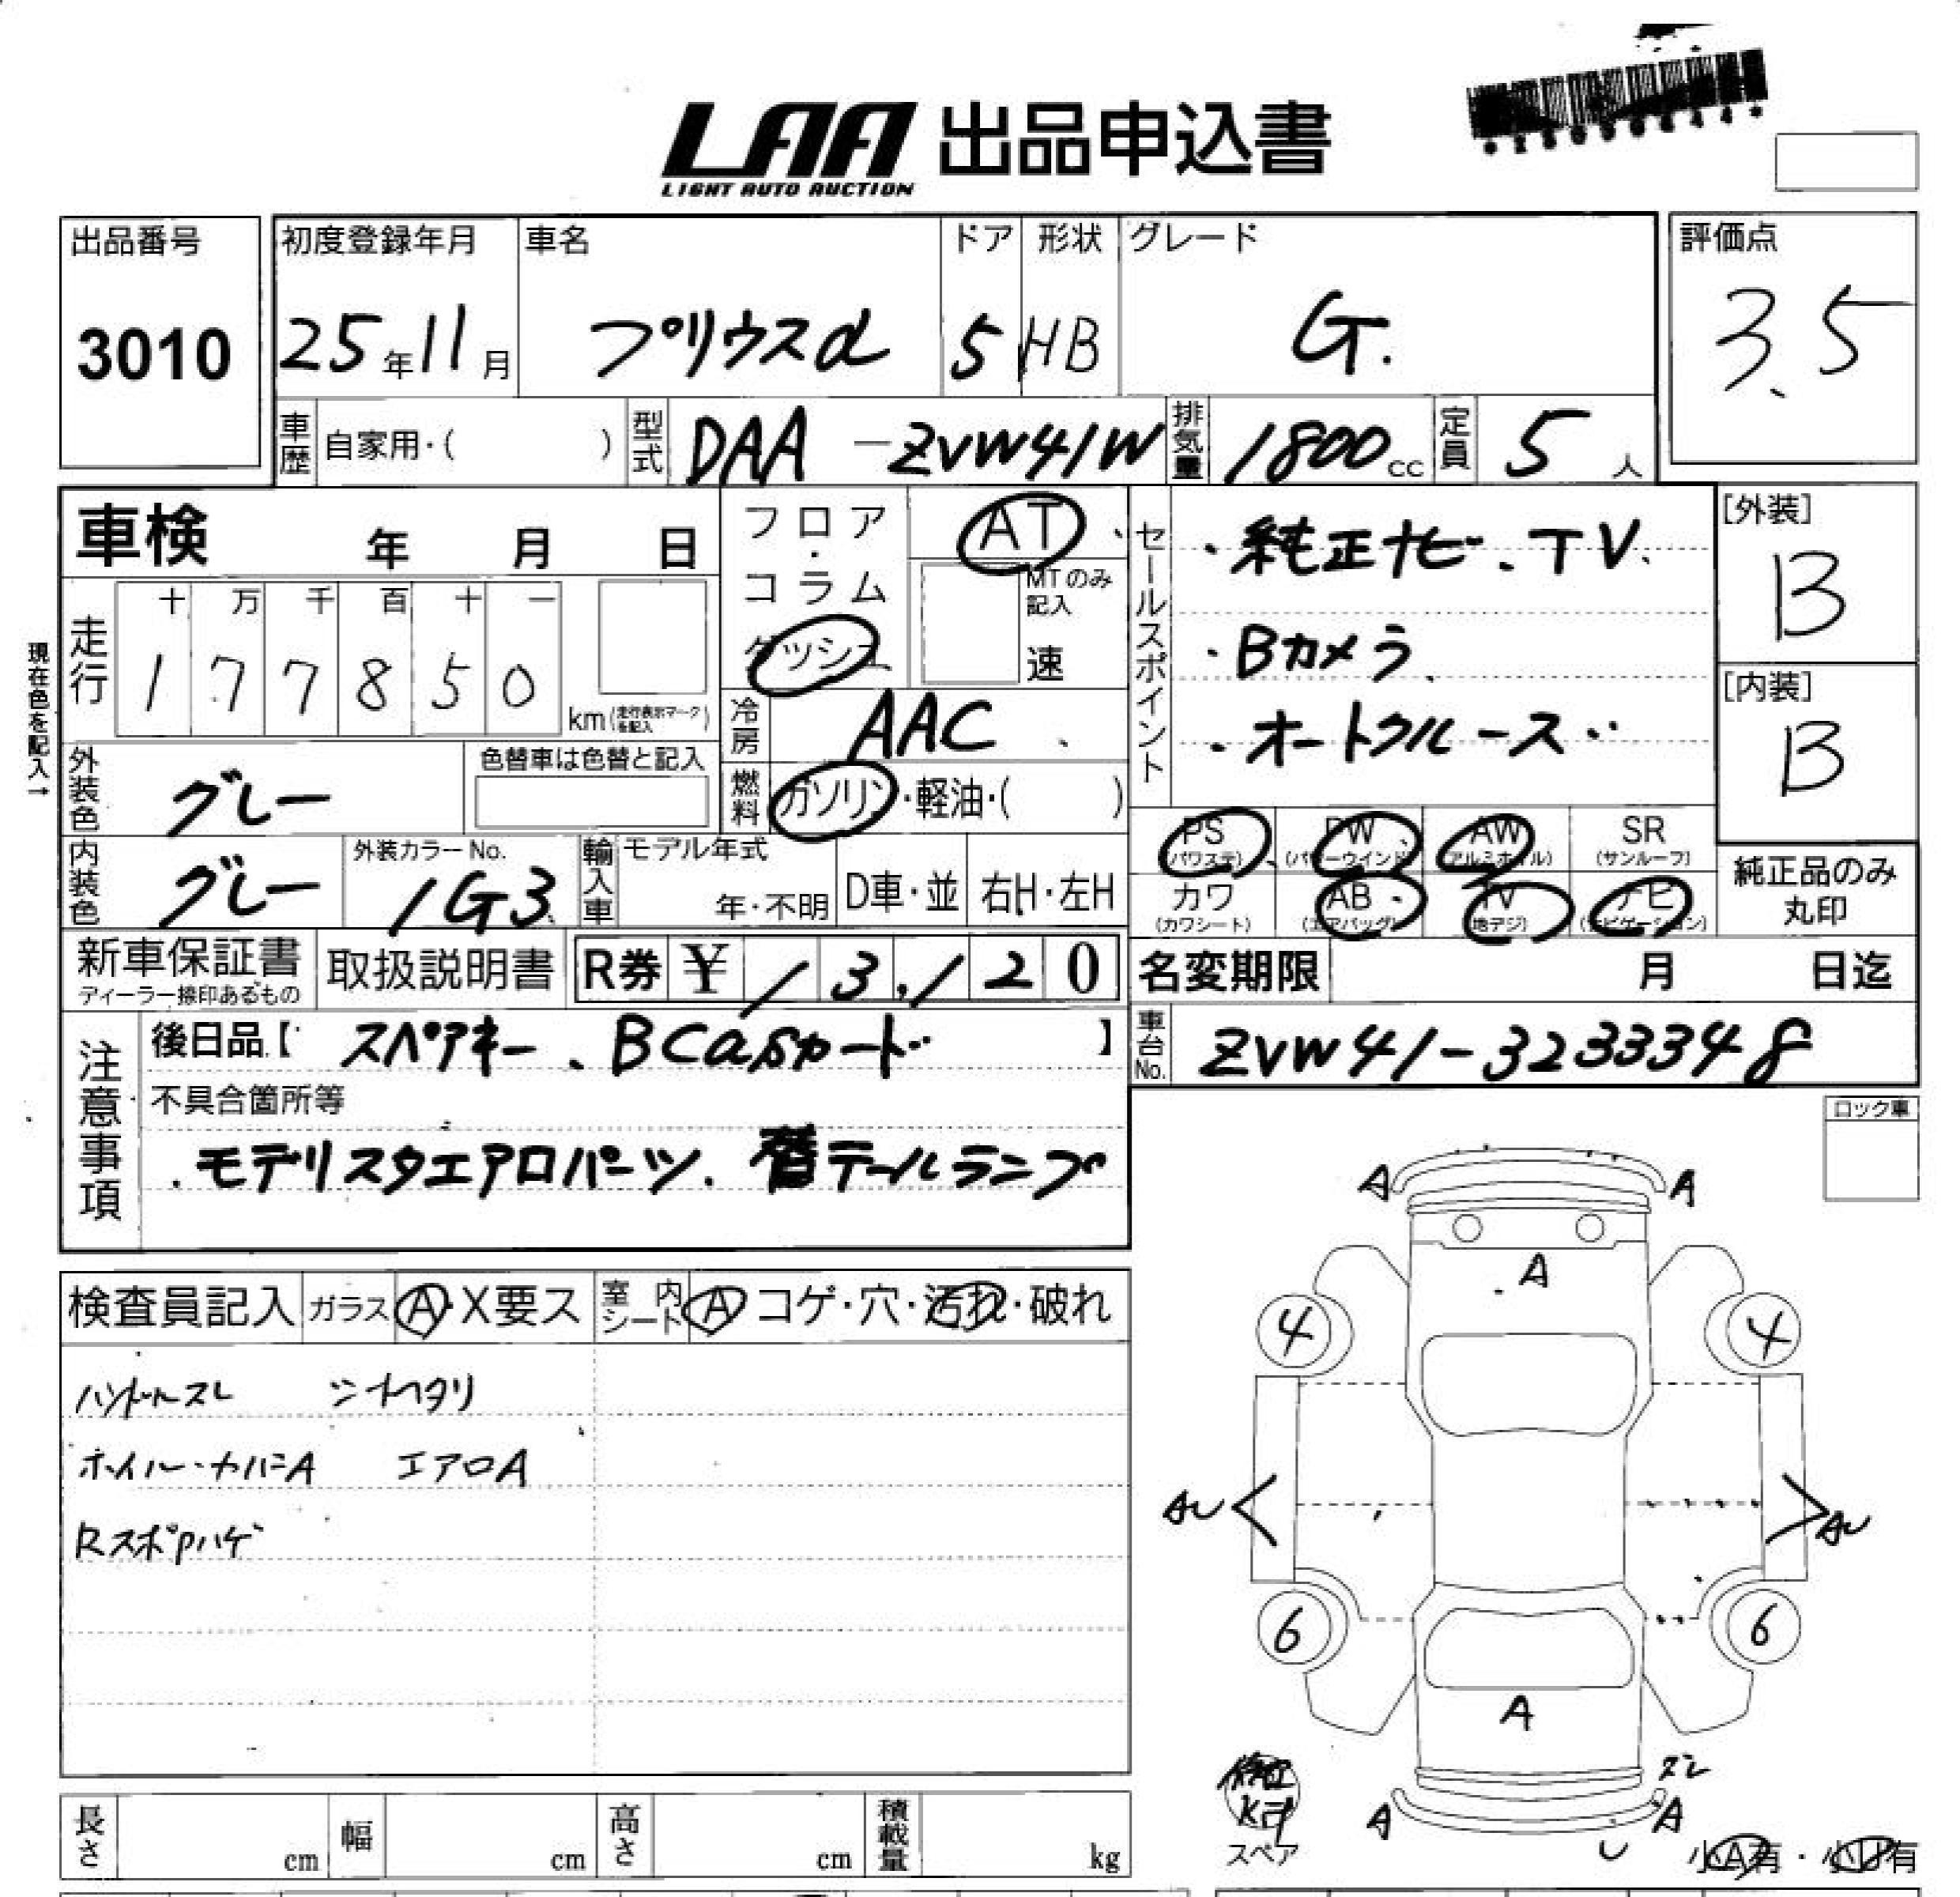 LAA 出品申込書
LIGHT AUTO AUCTION
出品番号
3010
初度登録年月
25年11月
車名
プリウスα
ドア
5
形状
HB
グレード
G.
評価点
3.5
車歴 自家用・( )
型式 DAA-ZVW41W
排気量 1800cc
定員 5人
車検 年 月 日
フロア・コラム
ダッシュ
AT
MTのみ記入
速
セールスポイント
・純正ナビ、TV、
・Bカメラ
・オートクルーズ
[外装]
B
[内装]
B
現在色を記入→
走行
十万千百十一
177850
km(走行表示マークを記入)
冷房 AAC
外装色 グレー
色替車は色替と記入
燃料 ガソリン・軽油・( )
PS (パワステ)
PW (パワーウインド)
AW (アルミホイル)
SR (サンルーフ)
内装色 グレー
外装カラーNo.
1G3
輸入車
モデル年式
年・不明
D車・並
右H・左H
カワ (カワシート)
AB (エアバッグ)
TV (地デジ)
ナビ (ナビゲーション)
純正品のみ丸印
新車保証書
ディーラー捺印あるもの
取扱説明書
R券 ¥13,120
名変期限 月 日迄
注意事項
後日品【 スペアキー、BCasカード 】
車台No. ZVW41-3233348
不具合箇所等
・モデリスタエアロパーツ、替テールランプ
ロック車
検査員記入
ガラス A・X要ス
室内シート A コゲ・穴・汚れ・破れ
ハンドルスレ
ホイル・カバーA エアロA
RスポPハゲ
A A
A
4 4
AU AU
6 6
A
ズレ
A A
U
スペア
小A有・小U有
長さ cm
幅 cm
高さ cm
積載量 kg